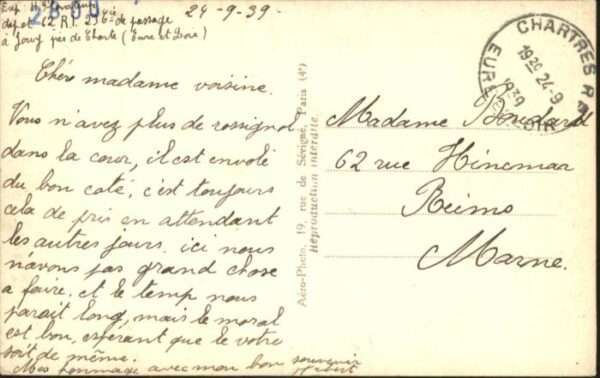 24-9-39-
de passage
à Jouy près de Chartres (Eure et Loir)
Chère madame voisine.
Vous n'avez plus de rossignol
dans la cour, il est envolé
du bon coté, c'est toujours
cela de pris en attendant
les autres jours. ici nous
n'avons pas grand chose
a faire. et le temp nous
parait long, mais le moral
est bon, espérant que le votre
soit de même.
Mes hommage avec mon bon souvenir
Aéro-Photo, 19, rue de Sévigné, Paria (4e)
Reproduction interdite.
CHARTRES R.P.
19 30 24-9
1939
EURE ET LOIR
Madame Boudard
62 rue Hincmar
Reims
Marne.